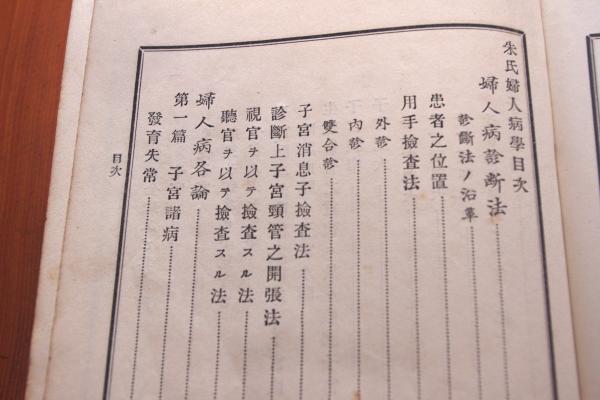 朱氏婦人病學目次
婦人病診斷法
診斷法ノ沿革
患者之位置
用手撿査法
外診
內診
雙合診
子宮消息子撿査法
診斷上子宮頸管之開張法
視官ヲ以テ撿査スル法
聽官ヲ以テ撿査スル法
婦人病各論
第一篇 子宮諸病
發育失常
目次